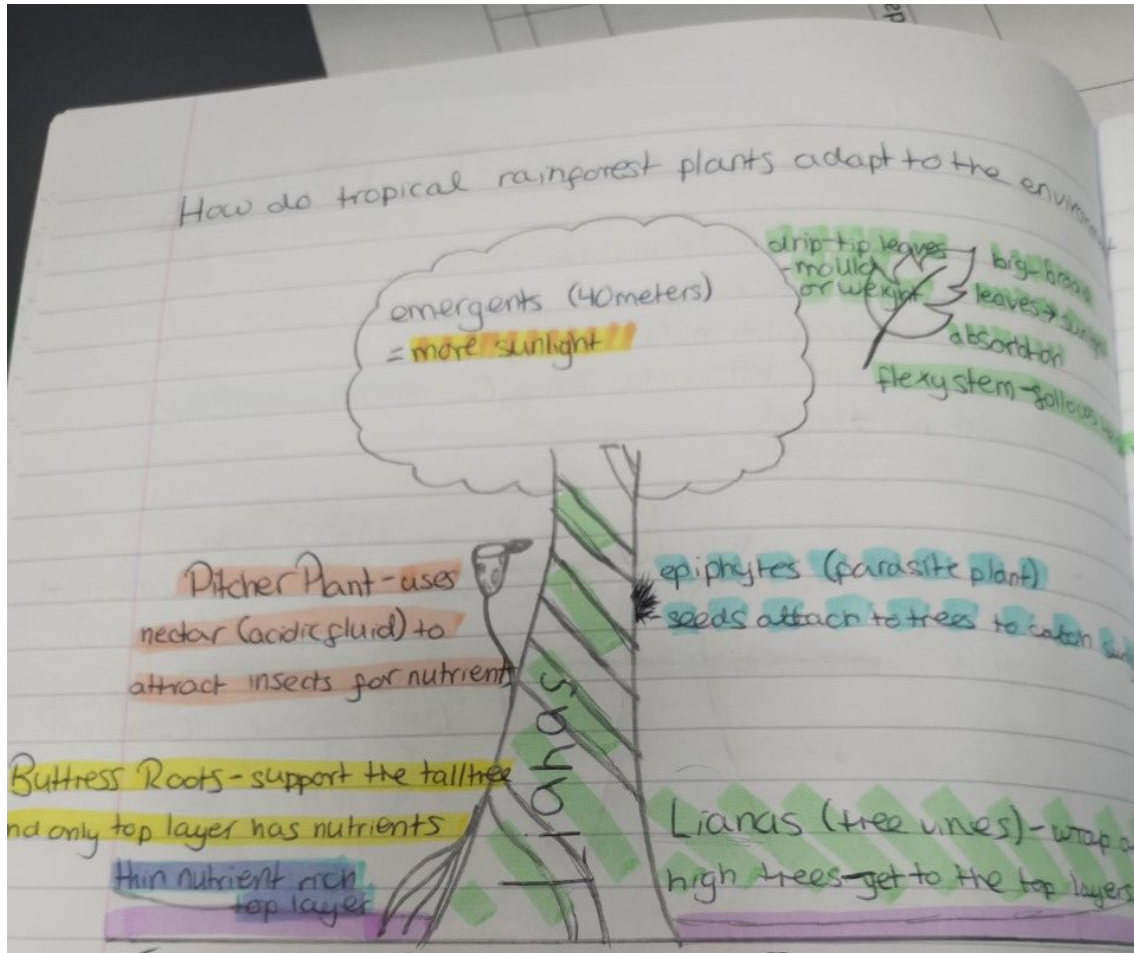 How do tropical rainforest plants adapt to the
emergents (40meters)
= more sunlight
drip-tip leaves
- mould
or weight
big-broad
leaves →
absorbtion
flexy stem-follows
Pitcher Plant-uses
nectar (acidic fluid) to
attract insects for nutrient
epiphytes (parasite plant)
- seeds attach to trees to catch
lianas
Buttress Roots-support the tall tree
only top layer has nutrients
thin nutrient rich
top layer
Lianas (tree vines)-wrap
high trees-get to the top layers